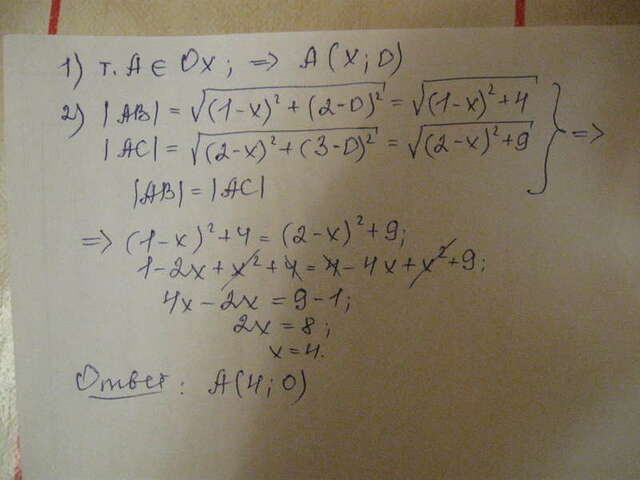 1) т. A ∈ Ox; ⇒ A(x; 0)
2) |AB| = √((1-x)² + (2-0)²) = √((1-x)² + 4)
|AC| = √((2-x)² + (3-0)²) = √((2-x)² + 9) } ⇒
|AB| = |AC|
⇒ (1-x)² + 4 = (2-x)² + 9;
1 - 2x + x² + 4 = 4 - 4x + x² + 9;
4x - 2x = 9 - 1;
2x = 8;
x = 4.
Ответ: A(4; 0)